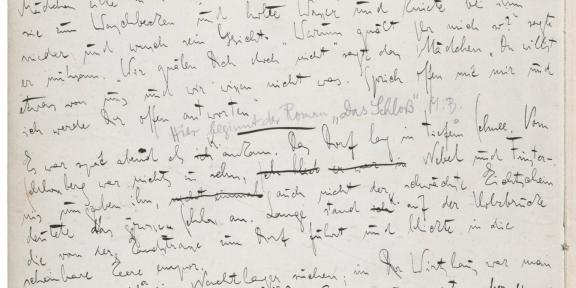 Mädchen eilte
sie zum Waschbecken und holte Wasser und kniete bei ihm
nieder und wusch sein Gesicht. "Warum quält Ihr mich so?" sagte
er mühsam. "Wir quälen Dich doch nicht" sagte das Mädchen, "Du willst
etwas von uns und wir wissen nicht was. Sprich offen mit mir und
ich werde Dir offen antworten"
Hier beginnt der Roman „Das Schloß", M. B.
Es war spät abend als ich ankam. Das Dorf lag in tiefem Schnee. Vom
Schlossberg war nichts zu sehn, Nebel und Finster-
nis umgaben ihn, nicht einmal auch nicht der schwächste Lichtschein
deutete das grosse Schloss an. Lange stand ich auf der Holzbrücke
die von der Landstrasse zum Dorf führt und blickte in die
scheinbare Leere empor.
Nachtlager suchen; im Wirtshaus war man